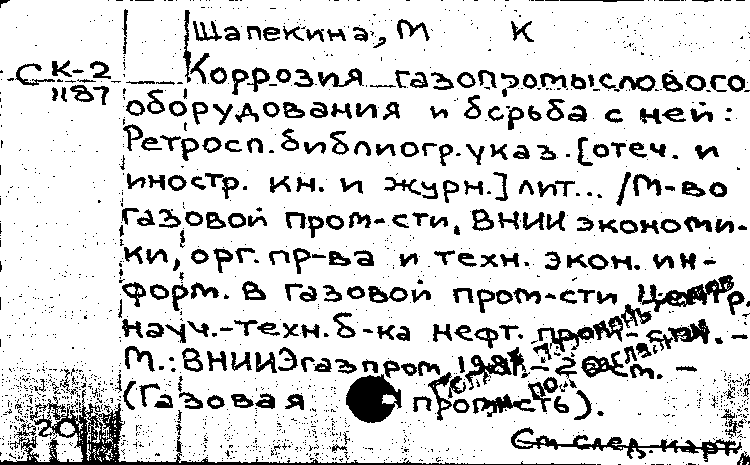 Шапекина, М К
СК-2
1187
Коррозия газопромыслового
оборудования и борьба с ней:
Ретросп. библиогр. указ. [отеч. и
иностр. кн. и журн.] лит... /М-во
газовой пром-сти, ВНИИ экономи-
ки, орг. пр-ва и техн. экон. ин-
форм. в газовой пром-сти Центр.
науч.-техн. б-ка нефт. пром-сти. -
М.: ВНИИЭгазпром, 1981. - 26 см. -
(Газовая пром-сть).
Полный перечень
под заглавием
20
См след. карт.